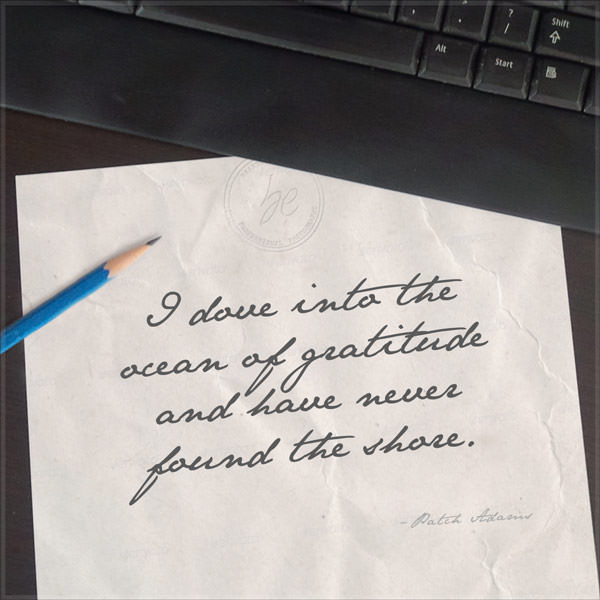 ?
/
Shift
Alt
Start
be
I dove into the
ocean of gratitude
and have never
found the shore.
- Patch Adams